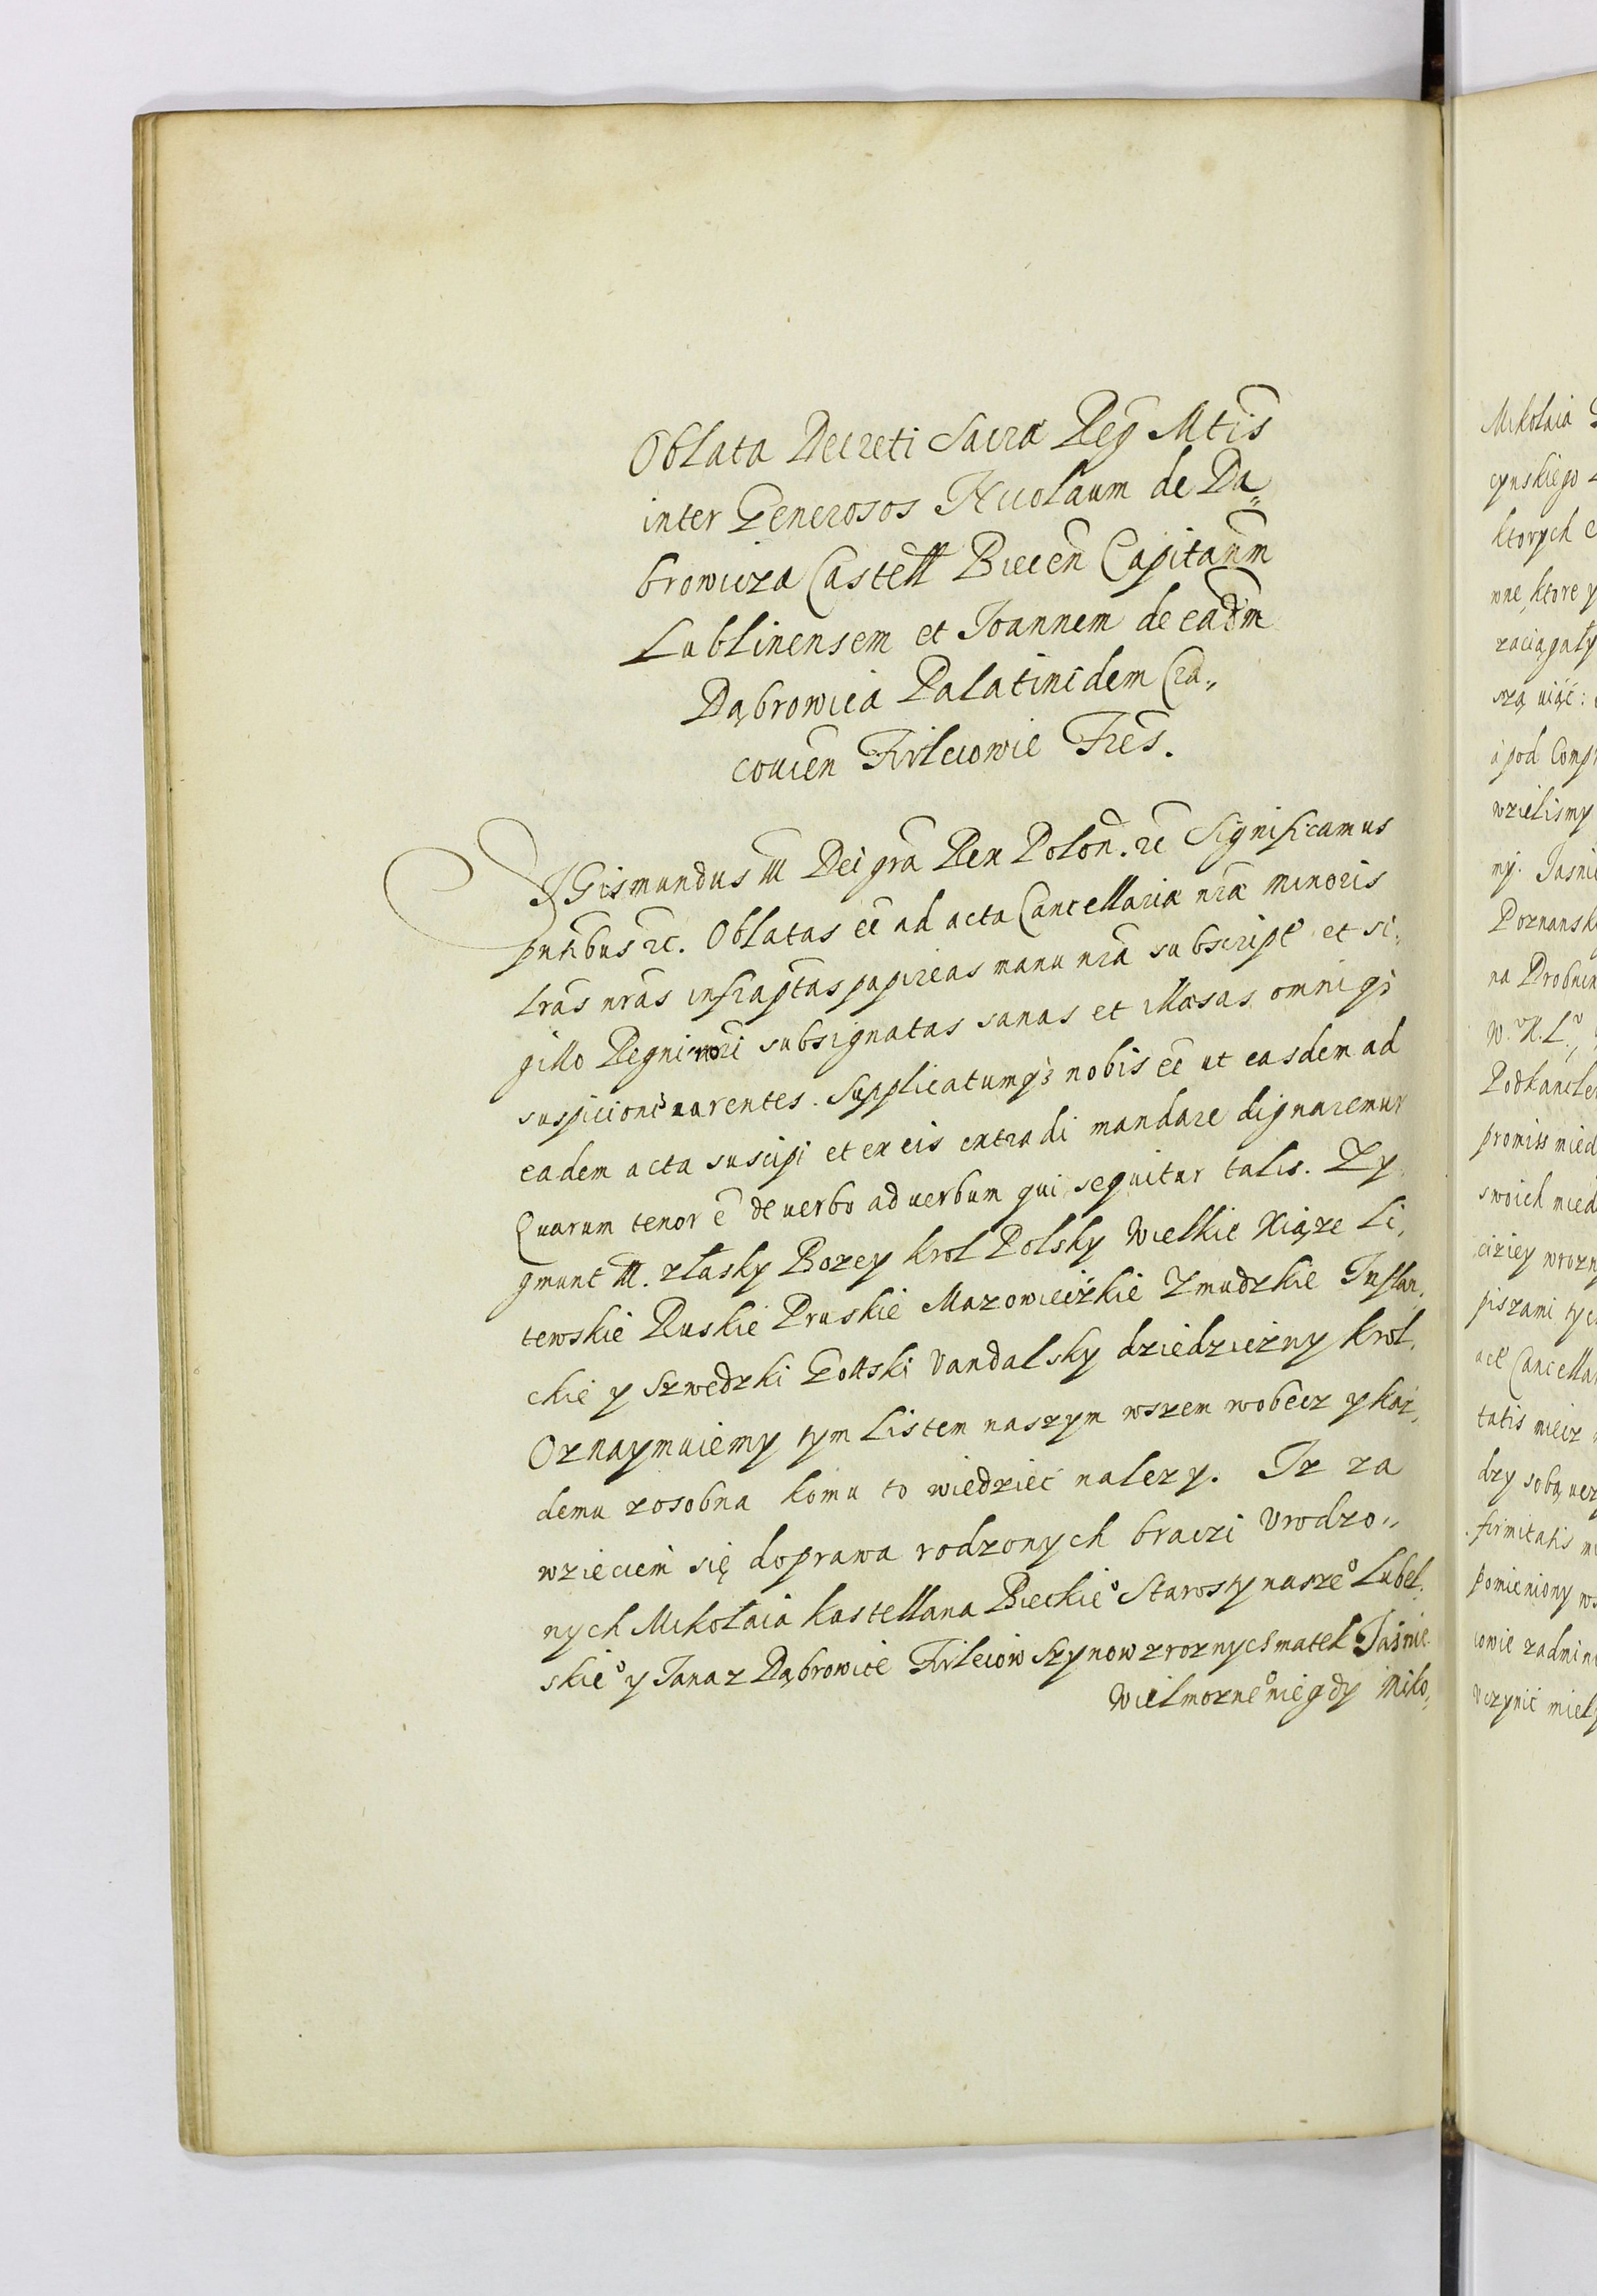 Oblata Decreti Sacrae Reg Mtis
inter Generosos Nicolaum de Da„
browicza Castell Biecen Capitanm
Lublinensem et Joannem de eadm
Dąbrowica Palatinidem Cra„
covien Firleiowie Fres.
SIGismundus III Dei gra Rex Polon. rc Significamus
pntibus rc. Oblatas ee ad acta Cancellariae nrae minoris
lras nras infraptas papireas manu nra subscript et si„
gillo Regni nri subsignatas sanas et illaesas omniq3
suspicione carentes. Supplicatumq3 nobis ee ut easdem ad
eadem acta suscipi et ex eis extradi mandare dignaremur
Quarum tenor e de verbo ad verbum qui sequitur talis. Zy
gmunt III. z łasky Bozey Krol Polsky Wielkie Xiąze Li„
tewskie Ruskie Pruskie Mazowieczkie Zmudzkie Inflan„
ckie y Szwedzki Gottski Vandalsky dziedziczny Krol.
Oznaymuiemy tym Listem naszym wszem wobecz y kaz„
demu zosobna komu to wiedziec nalezy. Iz za
wzieciem się doprawa rodzonych braczi Vrodzo„
nych Mikołaia Kastellana Bieckie° Starosty nasze° Lubel„
skie° y Jana z Dąbrowice Firleiow Szynow z roznych matek Jasnie
Wielmozne° niegdy Miko„
Mikołaia
cynskiego
ktorych
wne, ktore y
zaciągały
szą uiąć:
a pod Comp
wzielismy
my. Jasnie
Poznansk
na Probin
W. X. L°
Podkancle
promiss mied
swoich mied
cirzey wrozn
piszami tych
act Cancella
tatis miecz
dzy sobą uez
firmitatis m
pomieniony ws
iowie zadmin
Vczynic miely